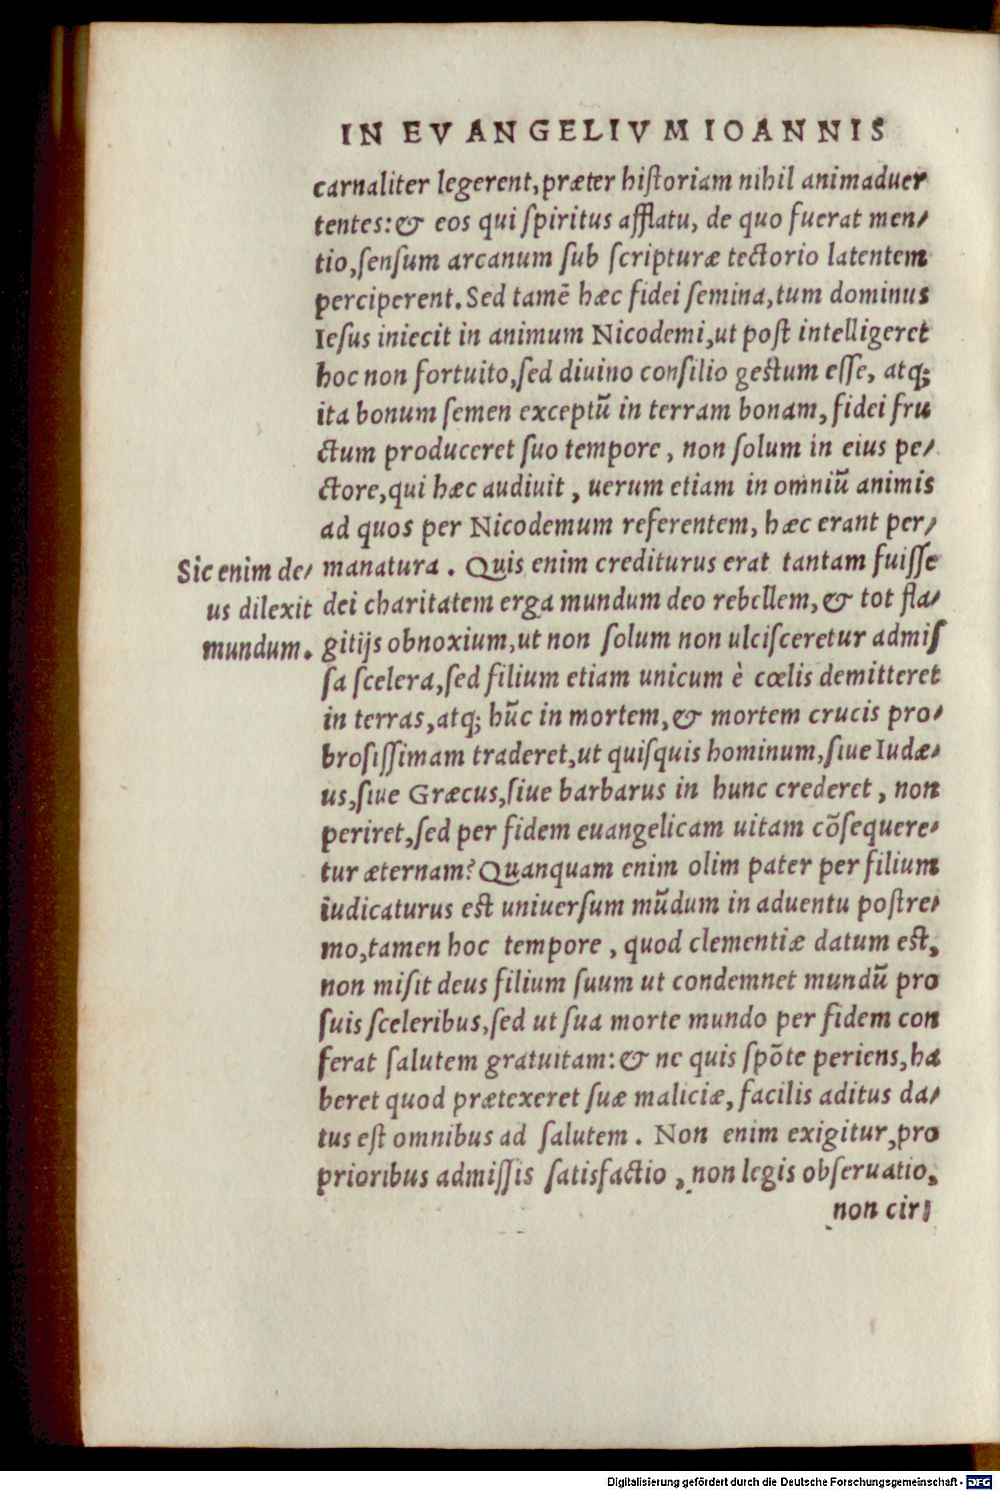 IN EVANGELIVM IOANNIS
carnaliter legerent, præter hiſtoriam nihil animaduer
tentes: & eos qui ſpiritus afflatu, de quo fuerat men/
tio, ſenſum arcanum ſub ſcripturæ tectorio latentem
perciperent. Sed tamē hæc fidei ſemina, tum dominus
Ieſus iniecit in animum Nicodemi, ut poſt intelligeret
hoc non fortuito, ſed diuino conſilio geſtum eſſe, atq;
ita bonum ſemen exceptū in terram bonam, fidei fru
ctum produceret ſuo tempore, non ſolum in eius pe/
ctore, qui hæc audiuit, uerum etiam in omniū animis
ad quos per Nicodemum referentem, hæc erant per/
Sic enim de/
us dilexit
mundum.
manatura. Quis enim crediturus erat tantam fuiſſe
dei charitatem erga mundum deo rebellem, & tot fla/
gitijs obnoxium, ut non ſolum non ulciſceretur admiſ
ſa ſcelera, ſed filium etiam unicum è cœlis demitteret
in terras, atq; hūc in mortem, & mortem crucis pro/
broſiſſimam traderet, ut quiſquis hominum, ſiue Iudæ/
us, ſiue Græcus, ſiue barbarus in hunc crederet, non
periret, ſed per fidem euangelicam uitam cōſequere/
tur æternam? Quanquam enim olim pater per filium
iudicaturus eſt uniuerſum mūdum in aduentu poſtre/
mo, tamen hoc tempore, quod clementiæ datum eſt,
non miſit deus filium ſuum ut condemnet mundū pro
ſuis ſceleribus, ſed ut ſua morte mundo per fidem con
ferat ſalutem gratuitam: & ne quis ſpōte periens, ha
beret quod prætexeret ſuæ maliciæ, facilis aditus da/
tus eſt omnibus ad ſalutem. Non enim exigitur, pro
prioribus admiſſis ſatisfactio, non legis obſeruatio,
non cir/
Digitalisierung gefördert durch die Deutsche Forschungsgemeinschaft - DFG